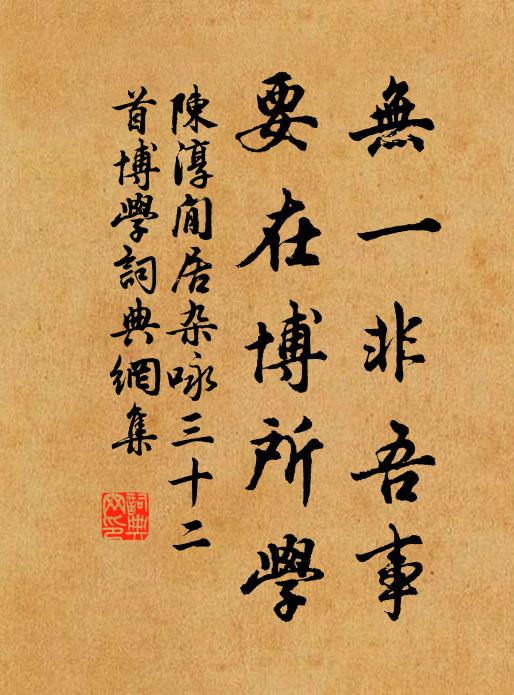 無一非吾事
要在博所學
陳淳閒居杂咏三十二
首博學詞典網集
詞典
网印